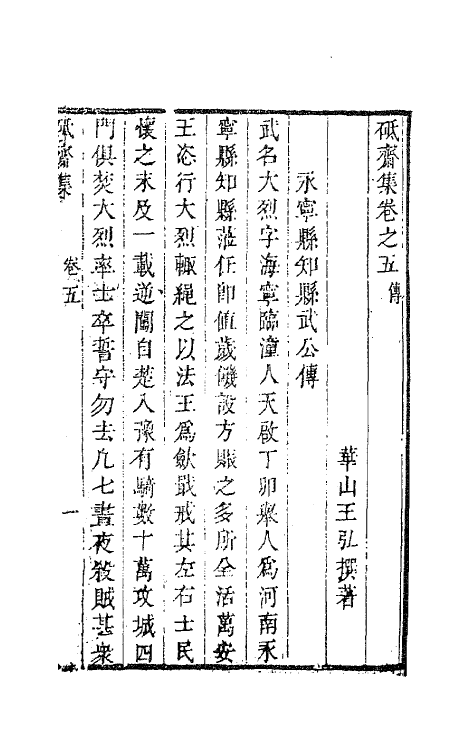 砥齋集卷之五 傳
華山王弘撰著
永寧縣知縣武公傳
武名大烈字海寧臨潼人天啟丁卯舉人爲河南永
寧縣知縣蒞任卽值歲饑設方賑之多所全活萬安
王恣行大烈輙繩之以法王爲歛戢戒其左右士民
懷之未及一載逆闖自楚入豫有騎數十萬攻城四
門俱焚大烈率士卒誓守勿去凡七晝夜殺賊甚衆
砥齋集 卷五 一